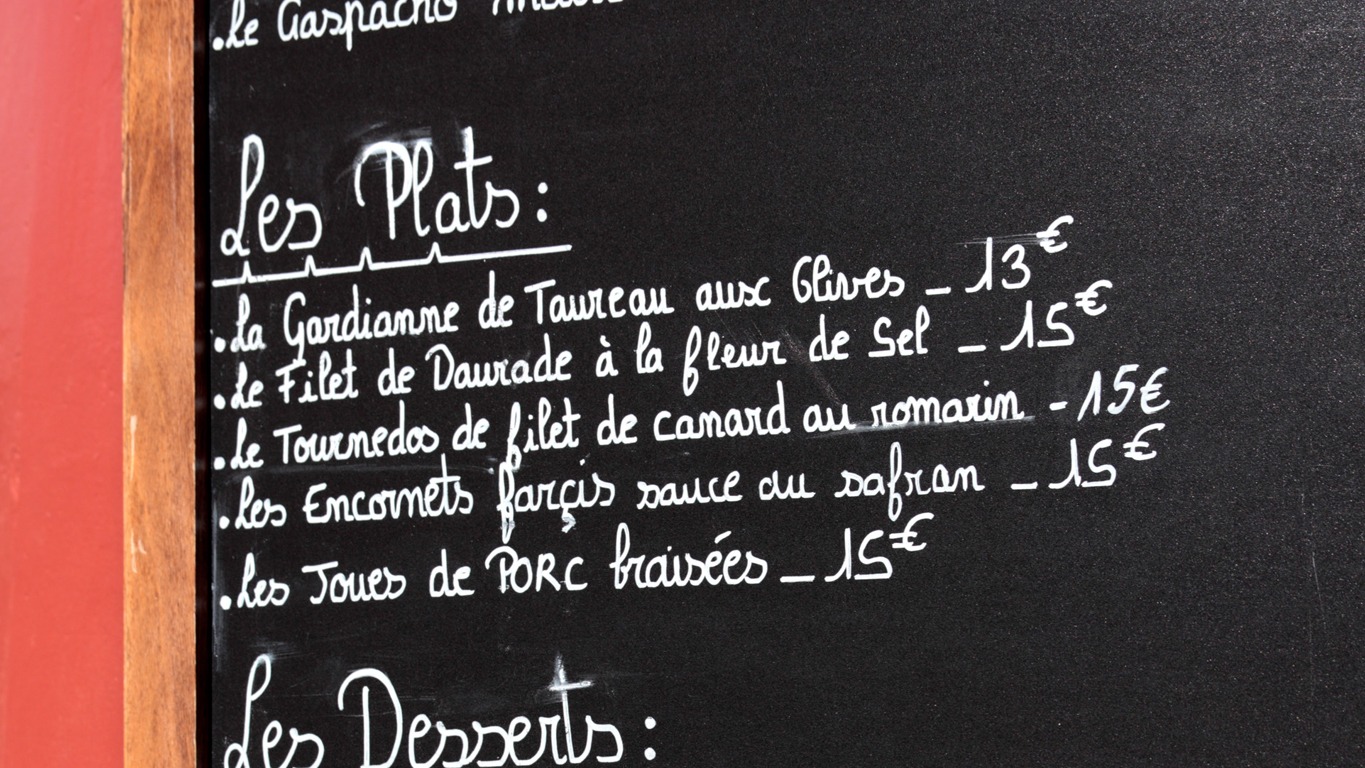 .Le Gaspacho
Les Plats :
.La Gardianne de Taureau aux Olives _ 13€
.Le Filet de Daurade à la fleur de Sel _ 15€
.Le Tournedos de filet de canard au romarin - 15€
.Les Encornets farçis sauce au safran _ 15€
.Les Joues de PORC braisées _ 15€
Les Desserts :